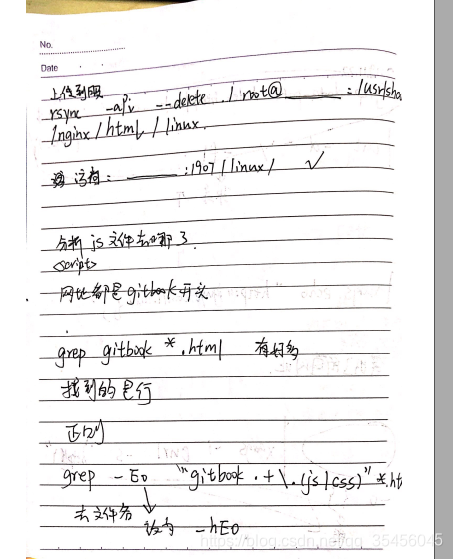 No.
Date
上传到服
rsync -apv --delete ./ root@______:/usr/sha
/nginx/html/linux
访问:______:1907/linux/ ✓
分析 js 文件去哪了.
<script>
网址都是gitbook开头
grep gitbook *.html 有好多
找到的是行
正则
grep -Eo "gitbook.+\.(js|css)" *.ht
去文件名 改为 -hEo
https://blog.csdn.net/qq_35456045